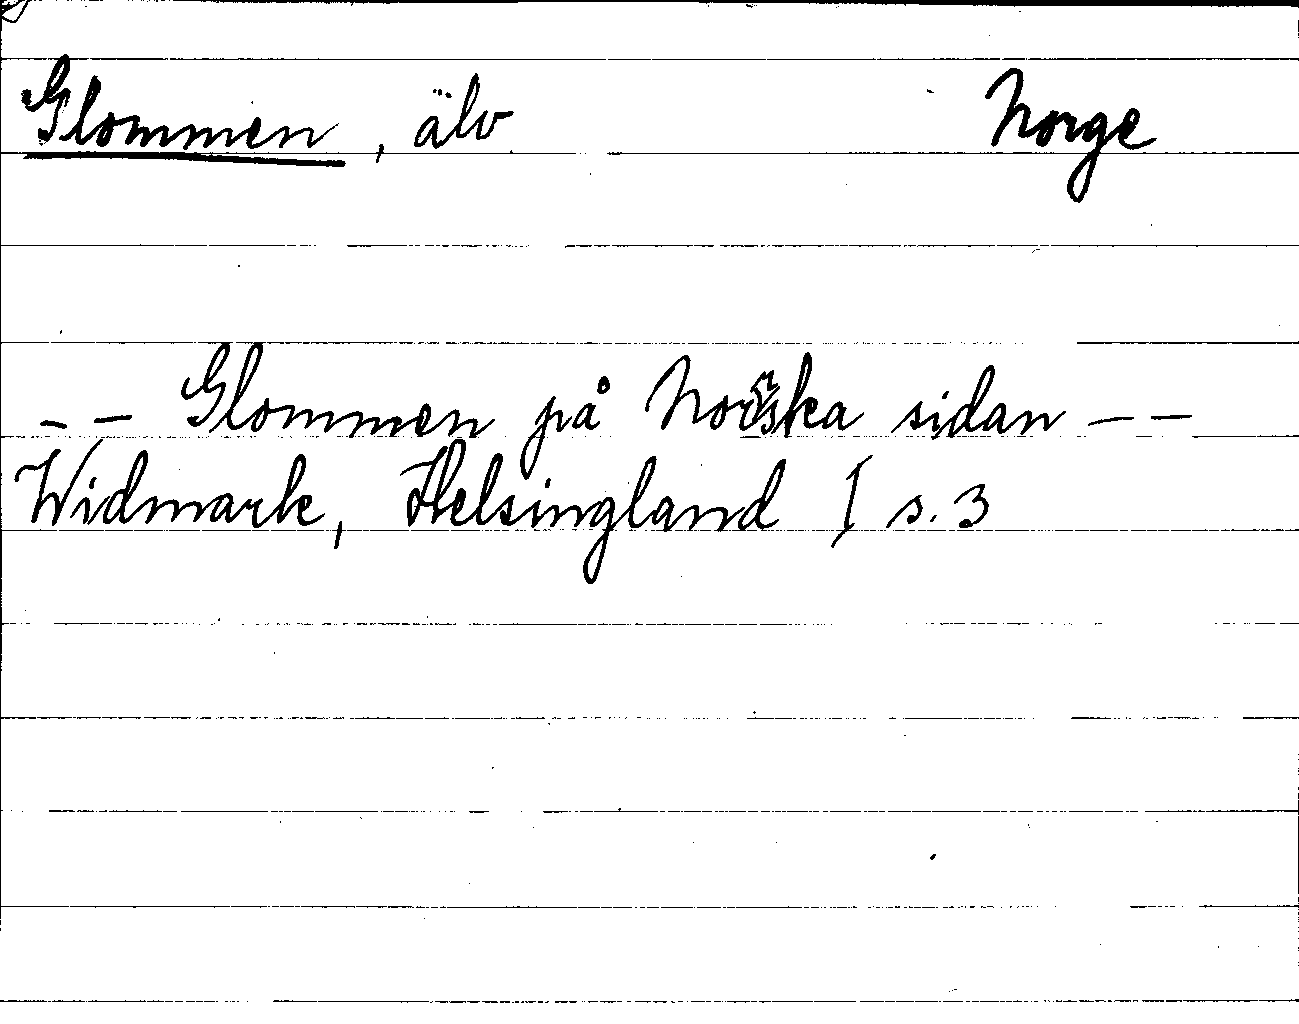 Glommen, älv Norge
-- Glommen på Norska sidan --
Widmark, Helsingland I s. 3